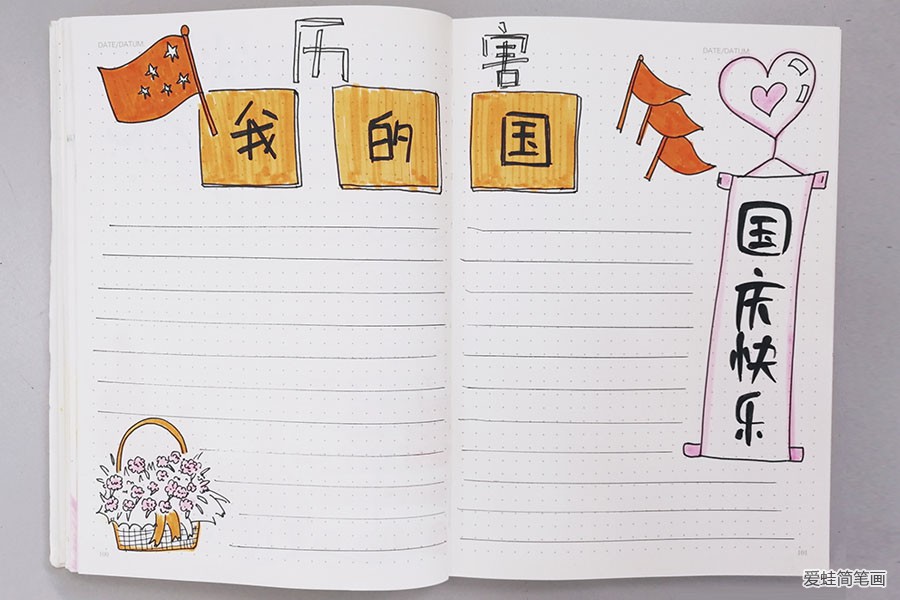 DATE/DATUM
历害
我的国
DATE/DATUM
国庆快乐
爱蛙简笔画